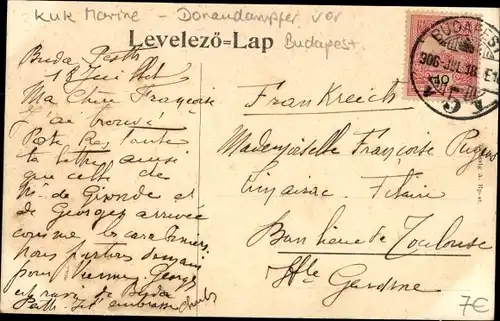 KuK Marine - Donaudampfer vor
Budapest
Levelező-Lap
BUDAPEST
906 JUL 18
10
Buda Pesth
18 Juillet
Ma Chère Françoise
J'ai trouvé
Poste Restante
ta lettre ainsi
que cette de
Mr de Gironde et
de Georges arrivée
comme les
nous partons demain
pour Vienne Georges
est ravi de Buda
Pesth et t'embrasse
Frankreich
Mademoiselle Françoise
Banlieue de Toulouse
Hte Garonne
7€